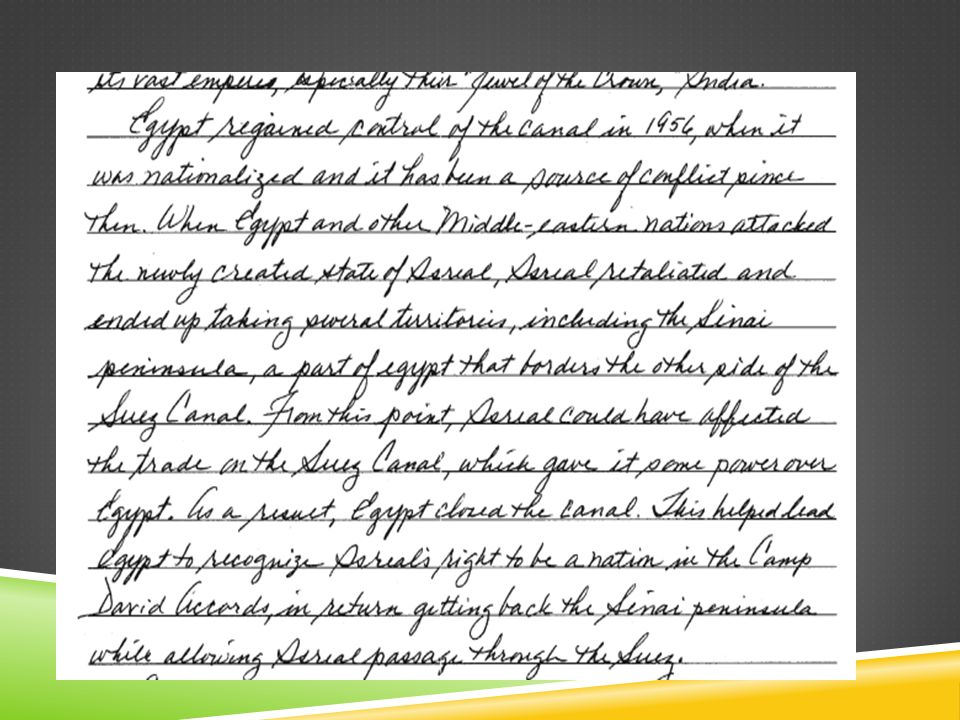 its vast emperes, especially their "Jewel of the Crown," India.
Egypt regained control of the canal in 1956, when it
was nationalized and it has been a source of conflict since
then. When Egypt and other Middle-eastern nations attacked
the newly created state of Isreal, Isreal retaliated and
ended up taking several territories, including the Sinai
peninsula, a part of egypt that borders the other side of the
Suez Canal. From this point, Isreal could have affected
the trade on the Suez Canal, which gave it some power over
Egypt. As a result, Egypt closed the canal. This helped lead
Egypt to recognize Isreal's right to be a nation in the Camp
David Accords, in return getting back the Sinai peninsula
while allowing Isreal passage through the Suez.